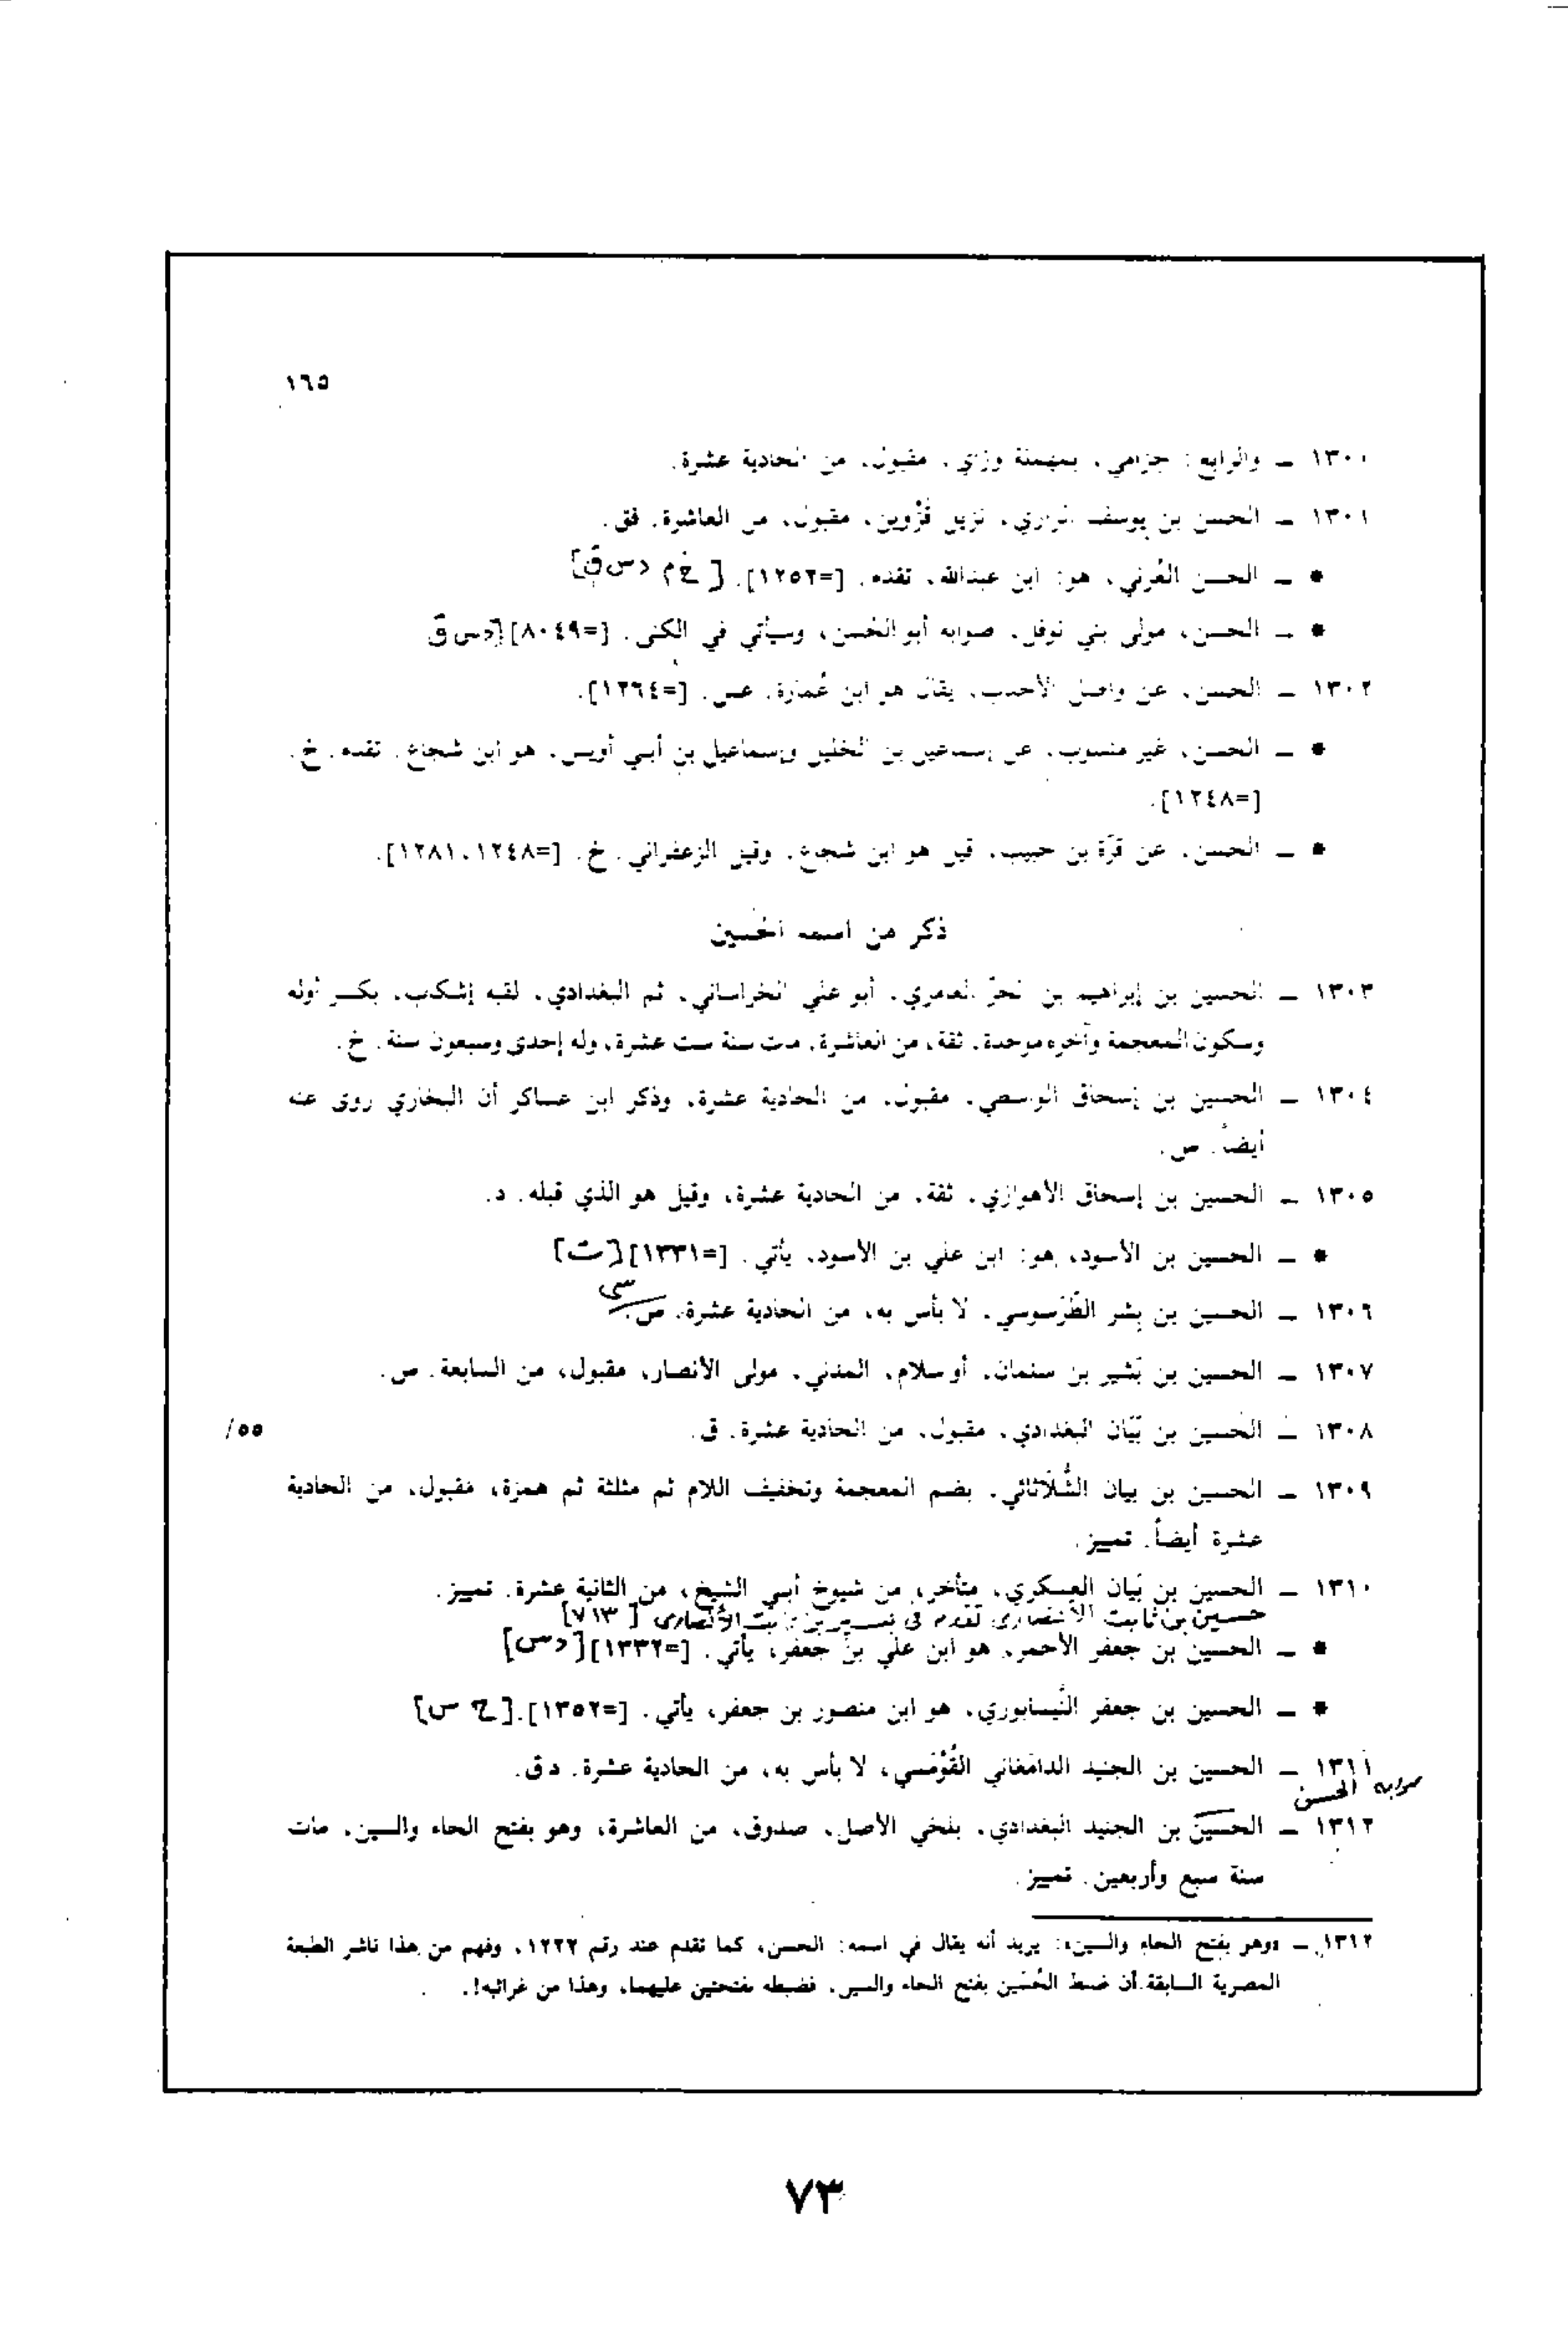 ١٦٥
١٣٠٠ ــ والرابع: حزامي، بمهملة وزاي، مقبول، من الحادية عشرة.
١٣٠١ ــ الحسن بن يوسف الرازي، نزيل قَزْوين، مقبول، من العاشرة. فق.
* ــ الحسن العُرني، هو: ابن عبدالله، تقدم. [=١٢٥٢]. [خ م د س ق]
* ــ الحسن، مولى بني نوفل، صوابه أبو الحسن، وسيأتي في الكنى. [=٨٠٤٩] [د س ق
١٣٠٢ ــ الحسن، عن واصل الأحدب، يقال هو ابن عُمارة. عس. [=١٢٦٤].
* ــ الحسن، غير منسوب، عن إسماعيل بن الخليل وإسماعيل بن أبي أويس، هو ابن شجاع، تقدم. خ.
[=١٢٤٨].
* ــ الحسن، عن قُرّة بن حبيب، قيل هو ابن شجاع، وقيل الزعفراني. خ. [=١٢٤٨، ١٢٨١].
ذكر من اسمه الحُسين
١٣٠٣ ــ الحسين بن إبراهيم بن الحُرّ العامري، أبو علي الخراساني، ثم البغدادي، لقبه إشكاب، بكسر أوله
وسكون المعجمة وآخره موحدة، ثقة، من العاشرة، مات سنة ست عشرة، وله إحدى وسبعون سنة. خ.
١٣٠٤ ــ الحسين بن إسحاق الواسطي، مقبول، من الحادية عشرة، وذكر ابن عساكر أن البخاري روى عنه
أيضاً. ص.
١٣٠٥ ــ الحسين بن إسحاق الأهوازي، ثقة، من الحادية عشرة، وقيل هو الذي قبله. د.
* ــ الحسين بن الأسود، هو: ابن علي بن الأسود، يأتي. [=١٣٣١] [ت]
١٣٠٦ ــ الحسين بن بِشر الطَّرَسوسي، لا بأس به، من الحادية عشرة. ص. سي
١٣٠٧ ــ الحسين بن بَشير بن سلمان، أو سلام، المدني، مولى الأنصار، مقبول، من السابعة. ص.
١٣٠٨ ــ الحُسين بن بَيَان البغدادي، مقبول، من الحادية عشرة. ق.
٥٥/
١٣٠٩ ــ الحسين بن بيان الشُّلاثائي، بضم المعجمة وتخفيف اللام ثم مثلثة ثم همزة، مقبول، من الحادية
عشرة أيضاً. تمييز.
١٣١٠ ــ الحسين بن بَيان العسكري، متأخر، من شيوخ أبي الشيخ، من الثانية عشرة. تمييز.
حسين بن ثابت الأنصاري تقدم في بن ثابت الأنصاري [٧١٣]
* ــ الحسين بن جعفر الأحمر، هو ابن علي بن جعفر، يأتي. [=١٣٣٢] [د س]
* ــ الحسين بن جعفر النَّيسابوري، هو ابن منصور بن جعفر، يأتي. [=١٣٥٢]. [خ س]
١٣١١ ــ الحسين بن الجنيد الدامَغاني القُوْمَسي، لا بأس به، من الحادية عشرة. د ق.
صوابه الحسن
١٣١٢ ــ الحسين بن الجنيد البغدادي، بلخي الأصل، صدوق، من العاشرة، وهو بفتح الحاء والسين، مات
سنة سبع وأربعين. تمييز.
١٣١٢ ــ «وهو بفتح الحاء والسين»: يريد أنه يقال في اسمه: الحسن، كما تقدم عند رقم ١٢٢٢، وفهم من هذا ناشر الطبعة
المصرية السابقة أن ضبط الحُسَين بفتح الحاء والسين، فضبطه بفتحتين عليهما، وهذا من غرائبه!.
٧٣